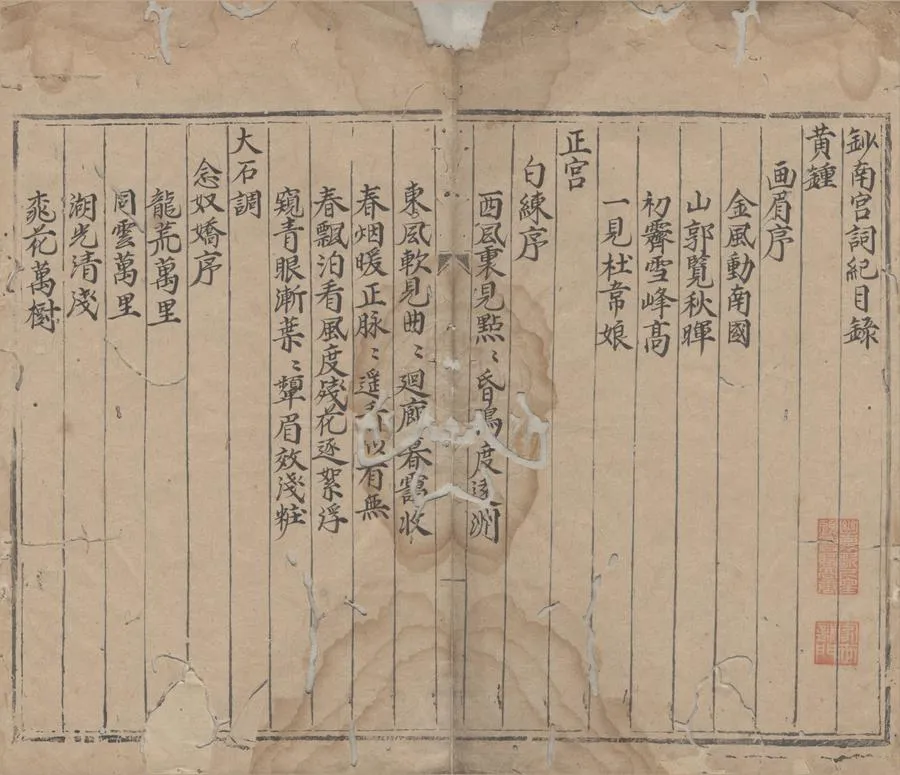 鈔南宮詞紀目錄
黄鍾
画眉序
金風動南國
山郭覽秋暉
初霽雪峰高
一見杜韋娘
正宫
白練序
西風裏見點〻昏鴉度遠洲
東風軟見曲〻廻廊暮靄收
春烟暖正脉〻遥看似有無
春飄泊看風度殘花逐絮浮
窺青眼漸葉〻顰眉效淺粧
大石調
念奴嬌序
龍荒萬里
同雲萬里
湖光清淺
飛花萬樹